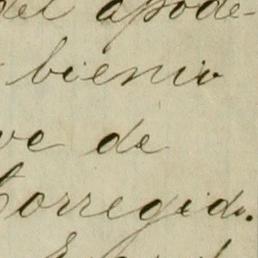 del apode-
bienio
ve de
Corregid.